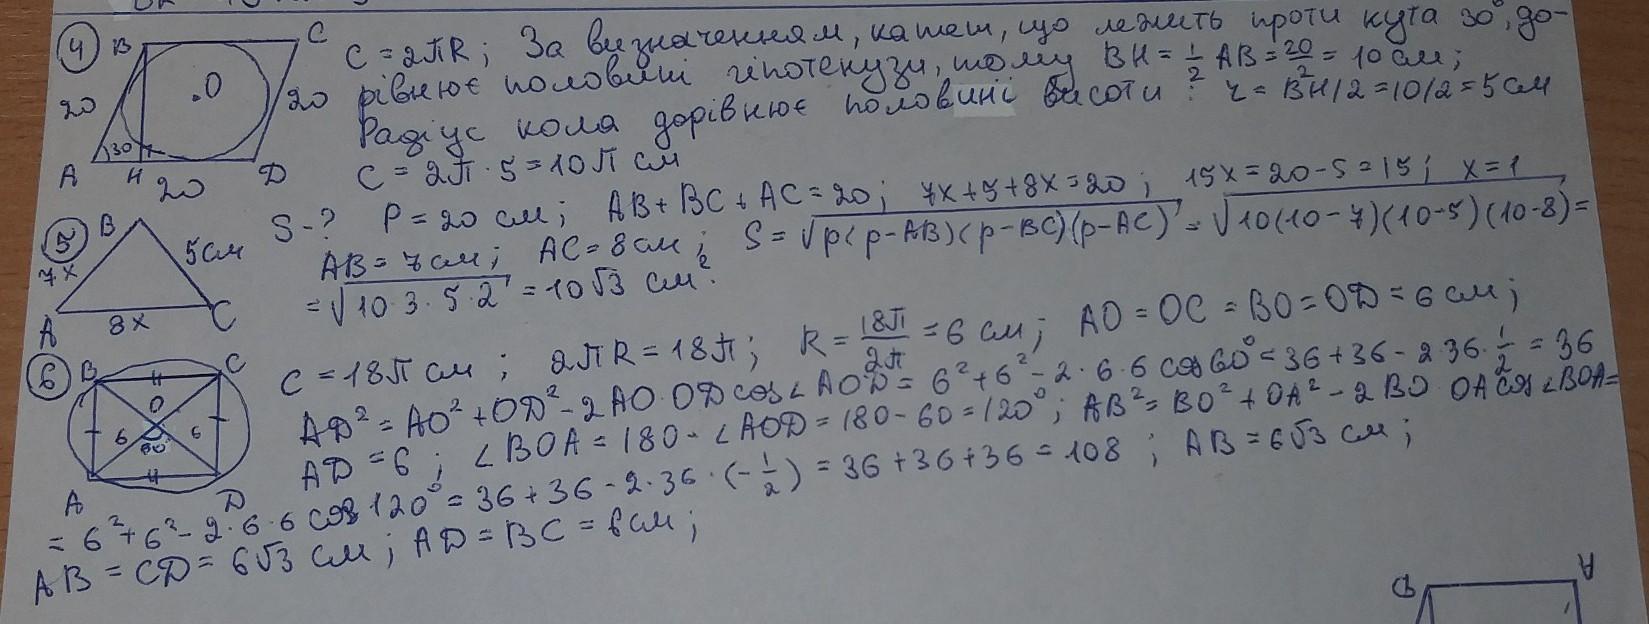 ④ B C C = 2πR; За визначенням, катет, що лежить проти кута 30°, до-
рівнює половині гіпотенузи, тому BH = 1/2 AB = 20/2 = 10 см;
20 .O 20 Радіус кола дорівнює половині висоти: r = BH/2 = 10/2 = 5 см
30° A H 20 D C = 2π · 5 = 10π см
⑤ B S - ? P = 20 см; AB + BC + AC = 20; 7x + 5 + 8x = 20; 15x = 20 - 5 = 15; x = 1
7x 5см AB = 7 см; AC = 8 см; S = √p(p-AB)(p-BC)(p-AC) = √10(10-7)(10-5)(10-8) =
A 8x C = √10·3·5·2 = 10√3 см².
⑥ B C C = 18π см; 2πR = 18π; R = 18π/2π = 6 см; AO = OC = BO = OD = 6 см;
O AD² = AO² + OD² - 2AO·OD cos∠AOD = 6² + 6² - 2·6·6 cos 60° = 36 + 36 - 2·36·1/2 = 36
6 6 60° AD = 6; ∠BOA = 180 - ∠AOD = 180 - 60 = 120°; AB² = BO² + OA² - 2BO·OA cos∠BOA =
A D = 6² + 6² - 2·6·6 cos 120° = 36 + 36 - 2·36·(-1/2) = 36 + 36 + 36 = 108; AB = 6√3 см;
AB = CD = 6√3 см; AD = BC = 6см;
A